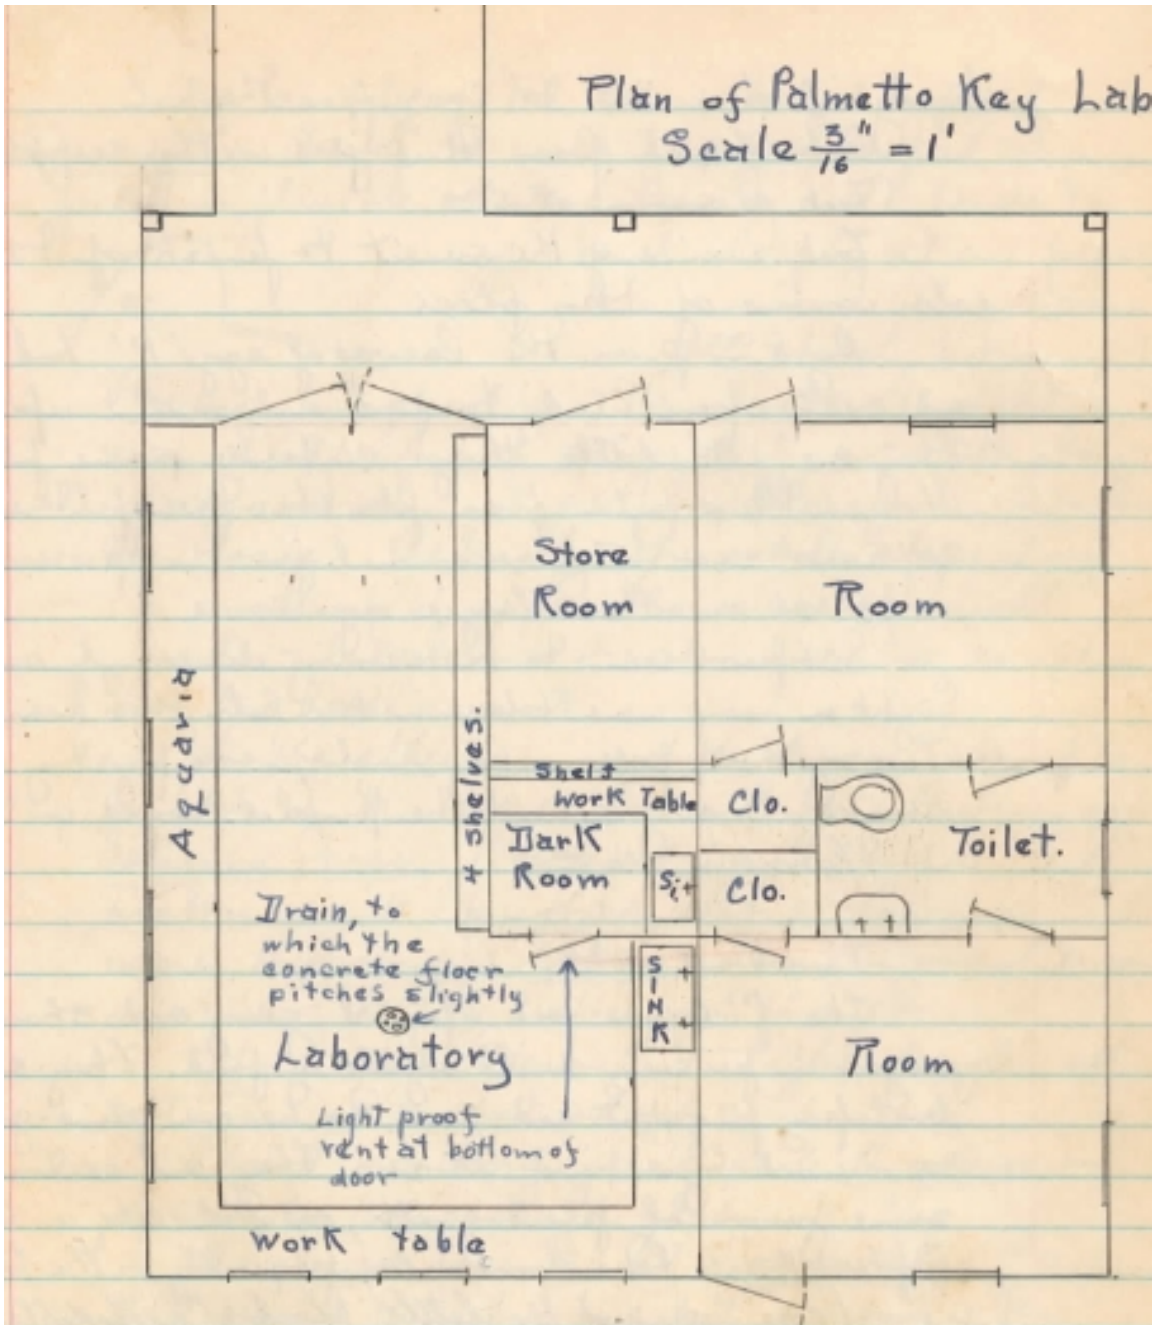 Plan of Palmetto Key Lab
Scale 3/16" = 1'
Store
Room
Room
Aquaria
4 shelves.
Shelf
Work Table
Clo.
Dark
Room
Si.
Clo.
Toilet.
Drain, to
which the
concrete floor
pitches slightly
SINK
Laboratory
Room
Light proof
vent at bottom of
door
Work table